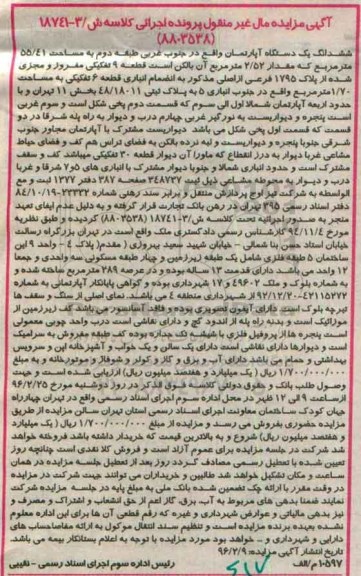 آگهی مزایده مال غیر منقول پرونده اجرائی کلاسه ش/۳-۱۸۷۴۱
(۸۸-۳۵۳۸)
ششدانگ یک دستگاه آپارتمان واقع در جنوب غربی طبقه دوم به مساحت ۵۵/۴۱
مترمربع که مقدار ۲/۵۲ مترمربع آن بالکن است قطعه ۹ تفکیکی مفروز و مجزی
شده از پلاک ۱۷۹۵ فرعی از اصلی مذکور به انضمام انباری قطعه ۶ تفکیکی به مساحت
۱/۷۰ مترمربع واقع در جنوب انباری ۵ به پلاک ثبتی ۴۸/۱۸۰۱۱ بخش ۱۱ تهران و با
حدود اربعه آپارتمان شمالا اول الی سوم که قسمت دوم پخی شکل است و سوم غربی
است پنجره و دیواریست به نورگیر غربی چهارم درب و دیوار به راه پله شرقا در دو
قسمت که قسمت اول پخی شکل می باشد دیواریست مشترک با آپارتمان مجاور جنوب
شرقی جنوبا پنجره و دیواریست و لبه نرده بالکن به فضای تراس هم کف و فضای حیاط
مشاعی غربا دیوار به درز انقطاع که ماورا آن دیوار قطعه ۳۰ تفکیکی میباشد کف و سقف
مشترک است و حدود انباری شمالا و جنوبا دیوار مشترک با انباری های ۵و۷ شرقا و غربا
درب و دیوار به محوطه مشاعی ذیل ثبت ۳۴۸۷۲۷ صفحه ۲۸۷ دفتر ۱۳۷۷ ثبت و مع
الواسطه به شرکت تیر اوج پردازش منتقل و برابر سند رهنی شماره ۲۳۳۳۲-۸۴/۱۰/۱۹
دفتر اسناد رسمی ۳۹۵ تهران در رهن بانک تجارت قرار گرفته و به دلیل عدم ایفای تعهد
منجر به صدور اجرائیه تحت کلاسه ش/۳-۱۸۷۴۱ (۸۸-۳۵۳۸) گردیده و طبق نظریه
مورخ ۹۴/۱۱/۴ کارشناس رسمی دادگستری ملک واقع است در تهران بزرگراه رسالت
خیابان استاد حسن بنا شمالی - خیابان شهید سعید بهروزی (مقدم) پلاک ۴ - واحد ۹ این
ساختمان ۵ طبقه فلزی شامل یک طبقه زیرزمین و چهار طبقه مسکونی سه واحدی و جمعا
۱۲ واحد می باشد دارای قدمت ۱۳ ساله بوده و در عرصه ۲۸۹ مترمربع ساخته شده و
به شماره بلوک و ملک ۲-۴۹۶۰ و ۱۷ شهرداری بوده و گواهی پایانکار آپارتمانی به شماره
۴۲۱۱۵۲۷۲-۹۲/۱۲/۷۰ از شهرداری منطقه ۴ می باشد نمای اصلی از سنگ و سقف ها
تیرچه بلوک است دارای آیفون تصویری بوده و فاقد آسانسور می باشد کف زیرزمین از
موزائیک است و بدنه راه پله از اندود گچ و دارای نقاشی است درب واحد چوبی معمولی
است پنجره ها از پروفیل فلزی با شیشه تک جداره بوده کف طبقه مفروش به سرامیک
است و دیوارها دارای نقاشی است دارای یک سالن و یک خواب و آشپزخانه اپن و سرویس
بهداشتی و حمام می باشد دارای آب و برق و گاز و کولر و شوفاژ و موتورخانه و به مبلغ
۱/۷۰۰/۰۰۰/۰۰۰ ریال ( یک میلیارد و هفتصد میلیون ریال) ارزیابی شده است و جهت
وصول طلب بانک و حقوق دولتی کلاسه فوق الذکر در روز دوشنبه مورخ ۹۶/۲/۲۵
از ساعت ۹ الی ۱۲ ظهر در محل اداره سوم اجرای اسناد رسمی واقع در تهران چهارراه
جهان کودک ساختمان معاونت اجرای اسناد رسمی استان تهران سالن مزایده از طریق
مزایده حضوری بفروش می رسد و مزایده از مبلغ ۱/۷۰۰/۰۰۰/۰۰۰ ریال ( یک میلیارد
و هفتصد میلیون ریال) شروع و به بالاترین قیمت که خریدار داشته باشد فروخته خواهد
شد شرکت در جلسه مزایده برای عموم آزاد است و فروش کلا نقدی است چنانچه روز
تعیین شده با تعطیل رسمی مصادف گردد روز بعد از تعطیل جلسه مزایده در همان
ساعت و مکان تشکیل خواهد شد طالبین و خریداران می توانند جهت شرکت در مزایده
در وقت مقرر با ارائه چک تضمین شده بانک ملی به مبلغ پایه در جلسه مزایده شرکت
نمایند ضمنا بدهی های مربوط به آب، برق، گاز اعم از حق انشعاب و اشتراک و مصرف و
نیز بدهی مالیاتی و عوارض شهرداری و غیره که رقم قطعی آن ها برای این اداره معلوم
نشده بعهده برنده مزایده است و تنظیم سند انتقال موکول به ارائه مفاصاحساب های
دارایی و شهرداری و .. خواهد بود مورد مزایده با توجه به اعلام بستانکار بیمه می باشد.
تاریخ انتشار آگهی مزایده: ۹۶/۲/۹
۱۰۵۹۷/م الف رئیس اداره سوم اجرای اسناد رسمی - نقیبی